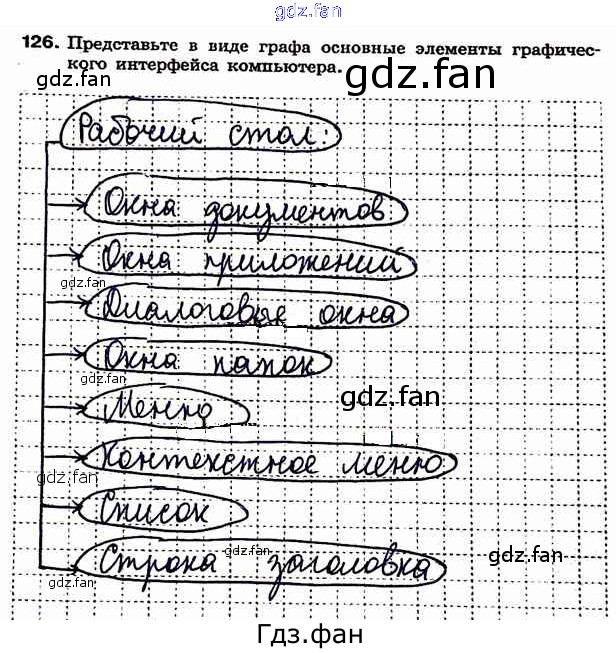 gdz.fan
126. Представьте в виде графа основные элементы графичес-
кого интерфейса компьютера.
gdz.fan
gdz.fan
Рабочий стол:
gdz.fan
Окна документов
Окна приложений
gdz.fan
Диалоговые окна
gdz.fan
Окна папок
gdz.fan
gdz.fan
Меню
Контекстное меню
gdz.fan
Список
gdz.fan
gdz.fan
Строка заголовка
gdz.fan
Гдз.фан